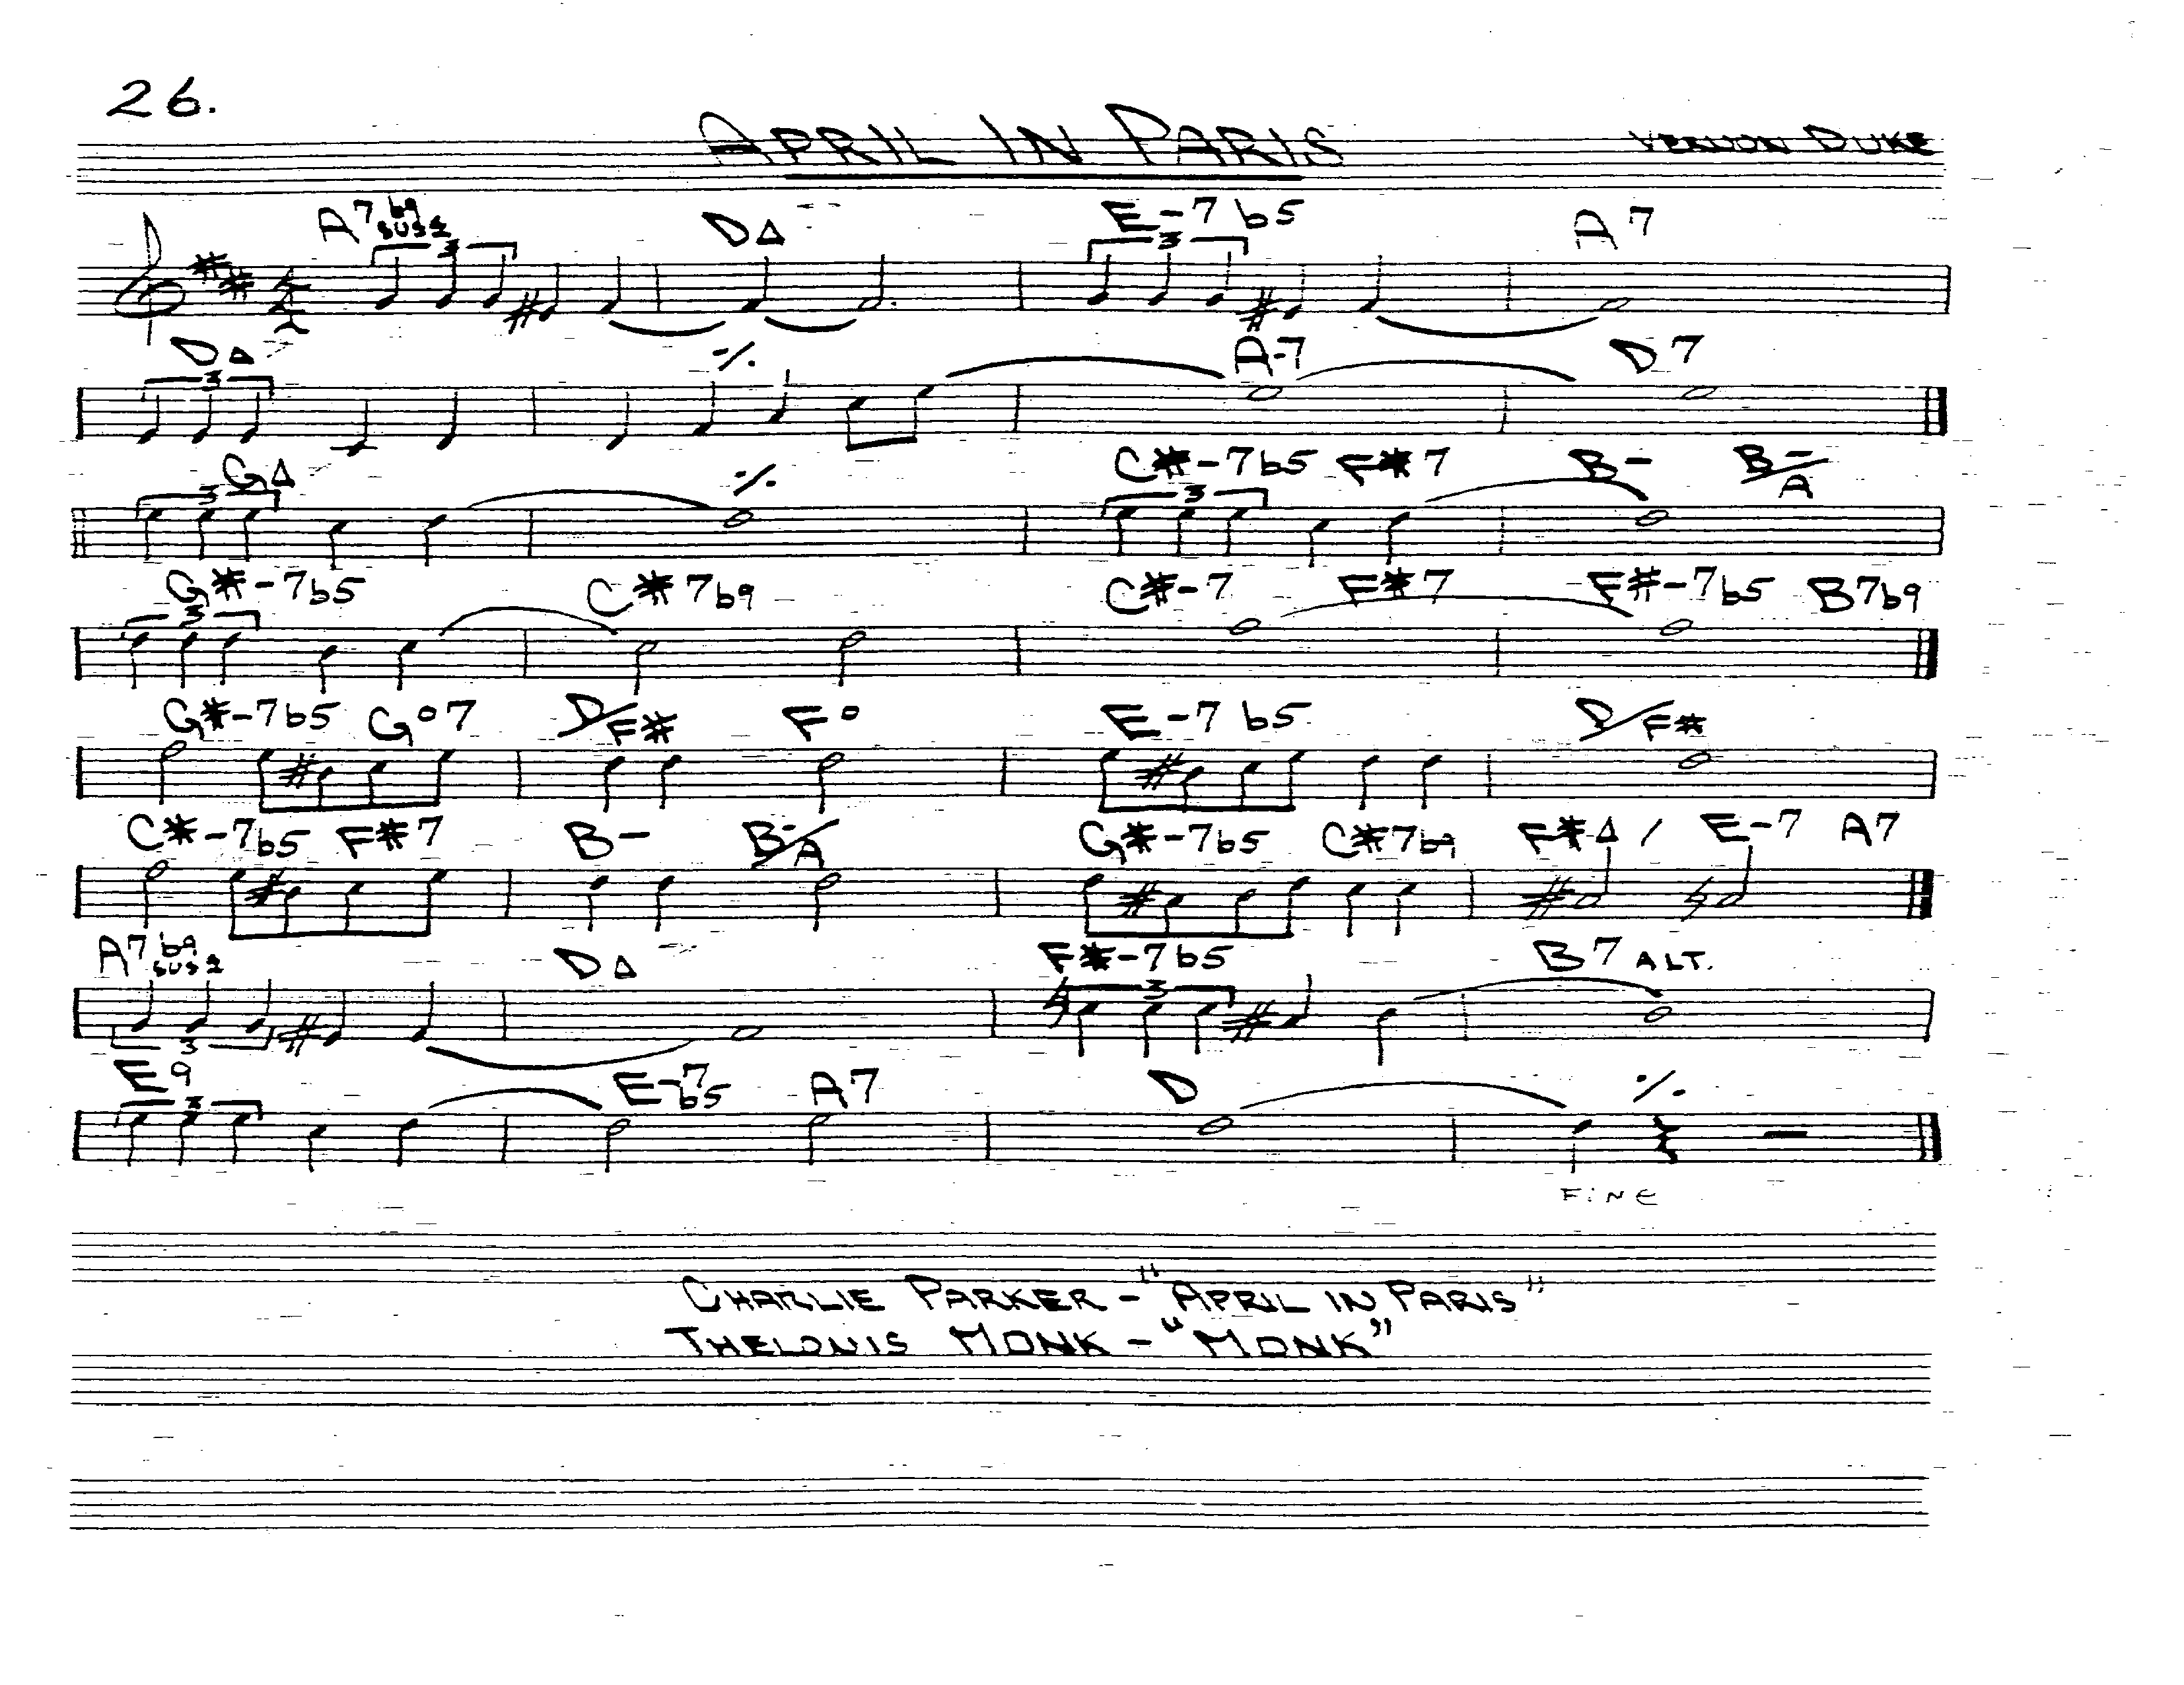 26.
APRIL IN PARIS VERNON DUKE
A7b9sus4 D∆ E-7b5 A7
3 3
D∆ ٪ A-7 D7
3
G∆ ٪ C#-7b5 F#7 B- B-/A
3 3
G#-7b5 C#7b9 C#-7 F#7 F#-7b5 B7b9
3
G#-7b5 G°7 D/F# F° E-7b5 D/F#
C#-7b5 F#7 B- B-/A G#-7b5 C#7b9 F#∆ / E-7 A7
A7b9sus4 D∆ F#-7b5 B7 ALT.
3 3
E9 E-7b5 A7 D ٪
3
FINE
CHARLIE PARKER - "APRIL IN PARIS"
THELONIS MONK - "MONK"